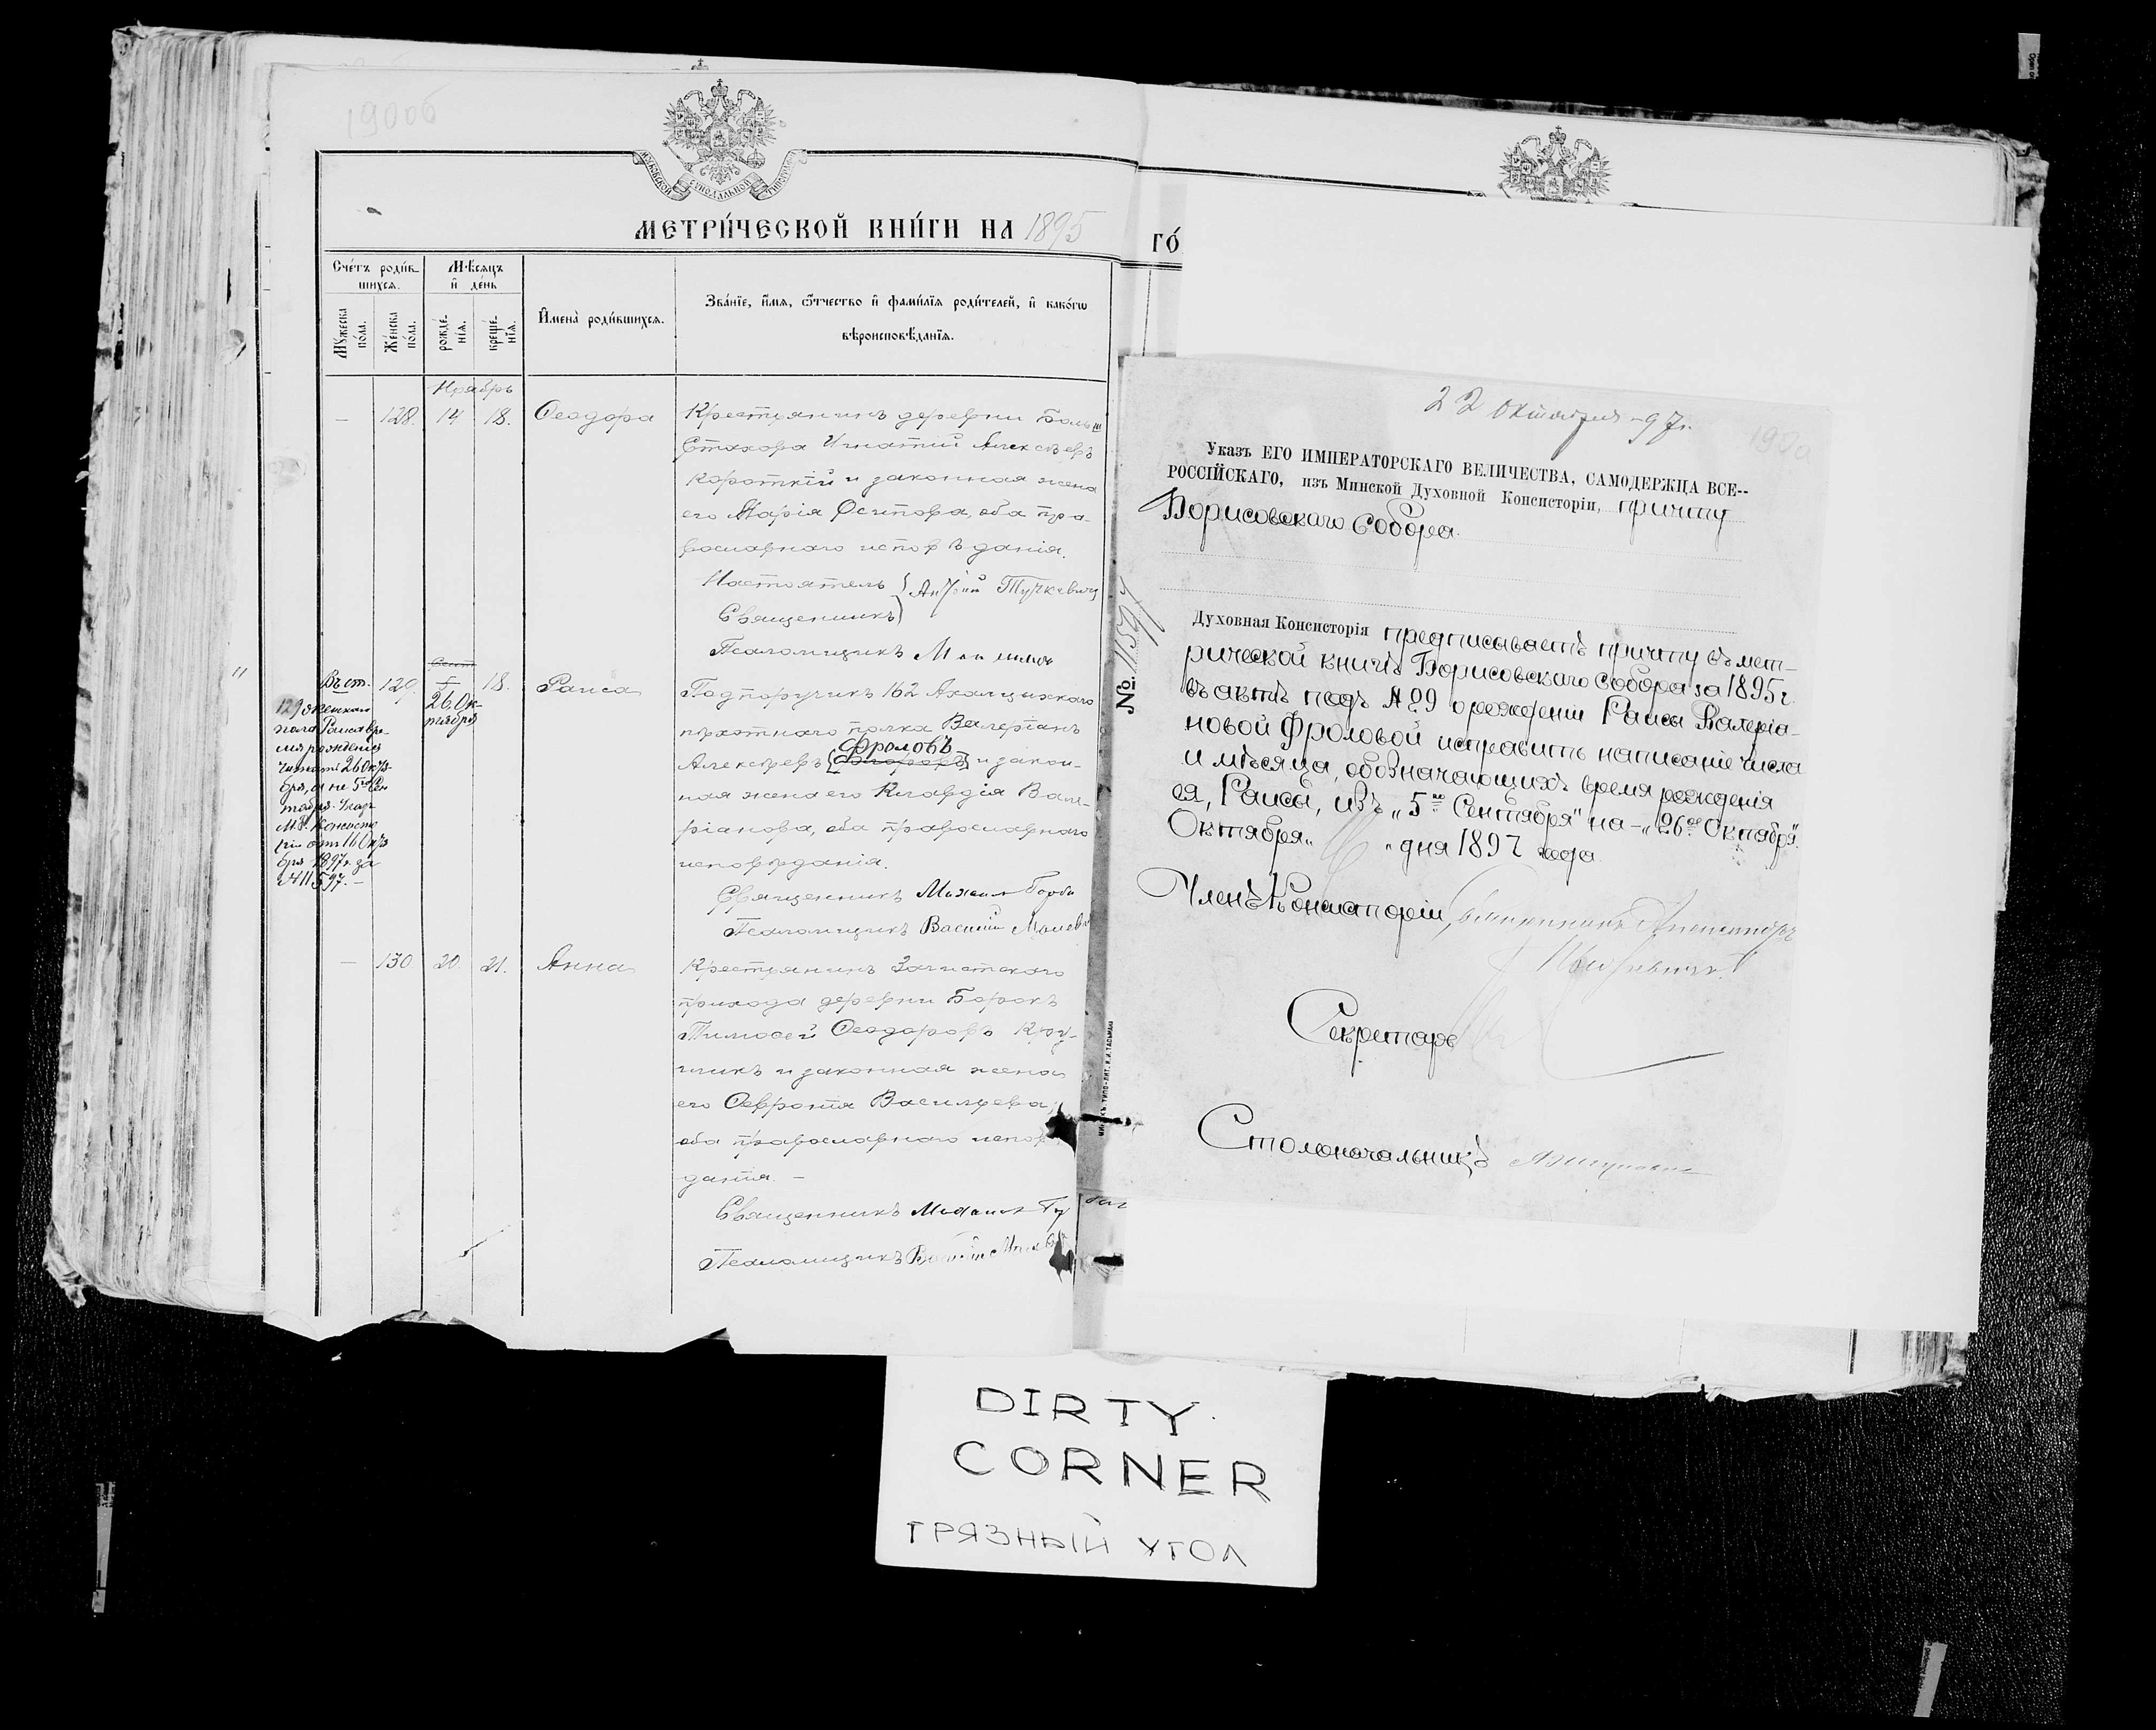 1900б
МОСКОВСКОЙ СѴНОДАЛЬНОЙ ТИПОГРАФІИ
МЕТРИ́ЧЕСКОЙ КНИ́ГИ НА 1895
ГО́
Сче́тъ роди́в-
шихся.
Мѣсяцъ
и҆ де́нь
Му́жеска по́ла.
Же́нска по́ла.
рожде́-нїя.
креще́-нїя.
И҆мена̀ роди́вшихся.
Зва́нїе, и҆́мя, ѻ҆́тчество и҆ фами́лїя роди́телей, и҆ како́гѡ
вѣроисповѣ́данїя.
Ноябрь
— 128. 14 18. Ѳеодора
Крестьянинъ деревни Больш
Стахова Игнатій Алексѣевъ
Короткій и законная жена
его Марія Осипова, оба пра-
вославнаго исповѣданія.
Настоятель
Священникъ
Псаломщикъ
Въ ст. 129. 5 18. Раиса
26 Ок-
тября
129 женскаго
пола Раиса вре-
мя рожденія
читать 26 Октя-
бря, а не 5го Сен
тября. Указъ
М. Д. Консисто
ріи отъ 16 Октя
бря 1897 г. за
№ 11597. —
Подпоручикъ 162 Ахалцихскаго
пѣхотнаго полка Валеріанъ
Фроловъ
Алексѣевъ и закон-
ная жена его Клавдія Вале-
ріанова, оба православнаго
исповѣданія.
Священникъ Михаилъ
Псаломщикъ Василій
— 130 20 21. Анна
Крестьянинъ Зачистскаго
прихода деревни Борокъ
Тимоѳей Ѳеодоровъ Кру-
его Февронія Васильева,
оба православнаго исповѣ
данія. —
Священникъ Михаилъ
Псаломщикъ Василій
22 октября -97 г.
1900
Указъ ЕГО ИМПЕРАТОРСКАГО ВЕЛИЧЕСТВА, САМОДЕРЖЦА ВСЕ--
РОССІЙСКАГО, изъ Минской Духовной Консисторіи, причту
Борисовскаго Собора.
№ 11597
Духовная Консисторія предписываетъ причту въ мет-
рической книгѣ Борисовскаго Собора за 1895 г.
въ актѣ подъ № 29 о рожденіи Раисы Валеріа-
новой Фроловой исправить написаніе числа
и мѣсяца, обозначающихъ время рожденія
ея, Раисы, изъ „5го Сентября" на — „26го Октября".
Октября „16" дня 1897 года.
Членъ Консисторіи, Священникъ Александръ
Секретарь
Столоначальникъ
DIRTY
CORNER
ГРЯЗНЫЙ УГОЛ